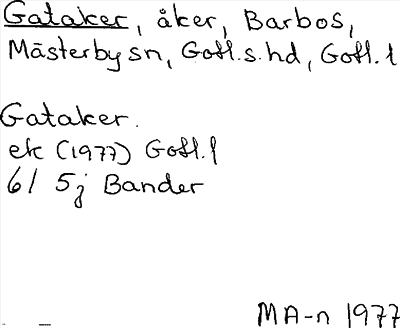 Gataker, åker, Barbos,
Mästerby sn, Gotl. s. hd, Gotl. l
Gataker.
ek (1977) Gotl. l
6I 5j Bander
MA-n 1977